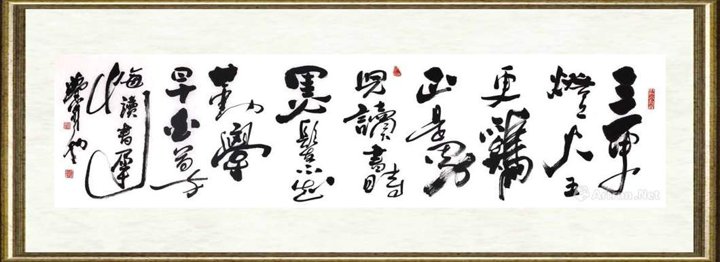 三更
燈火五
更雞
正是男
兒讀書時
黑髮不知
勤學
早白首方
悔讀書遲
Artron.Net